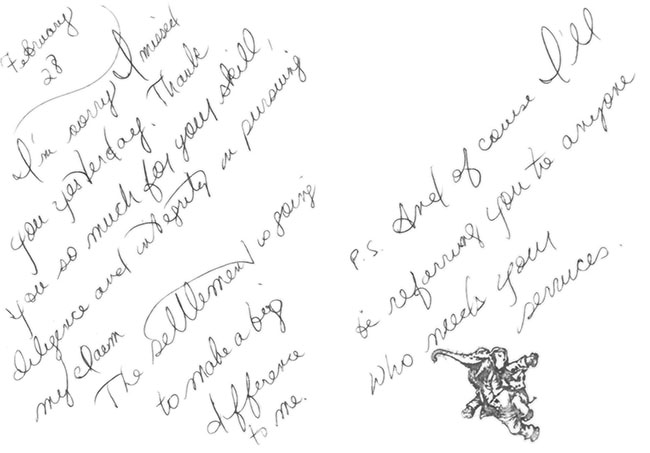 February
28
I'm sorry I missed
you yesterday. Thank
you so much for your skill,
diligence and integrity in pursuing
my claim The settlement is going
to make a big
difference
to me.
P.S. And of course I'll
be referring you to anyone
who needs your
services.